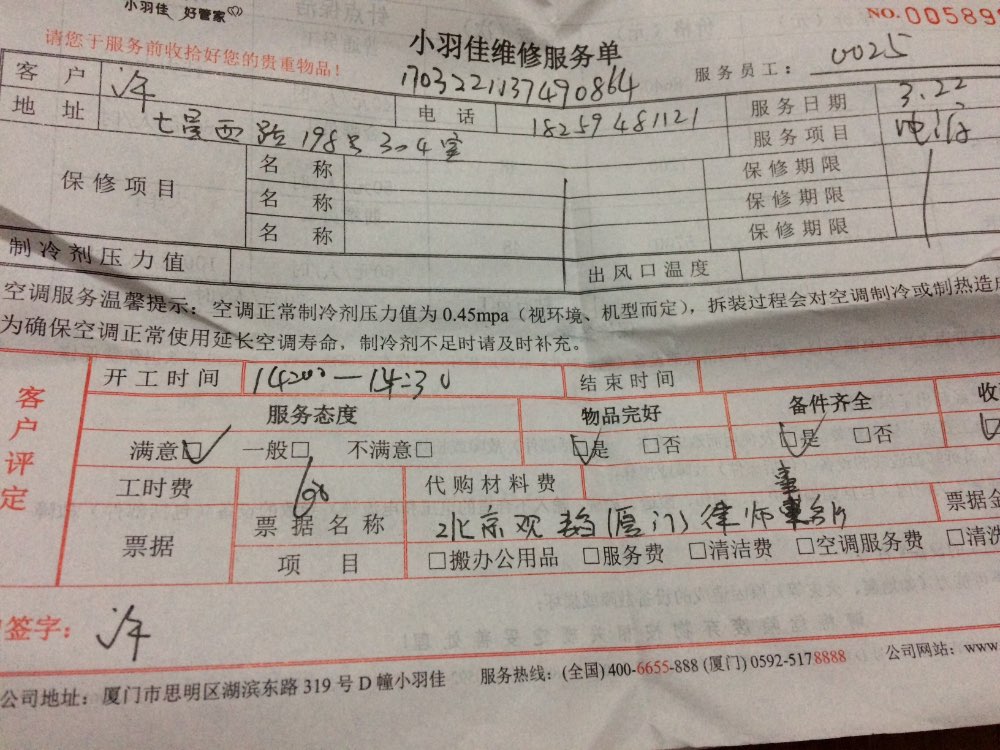 小羽佳 好管家
NO.00589
请您于服务前收拾好您的贵重物品！
小羽佳维修服务单
1703221137490864
服务员工： 0025
客 户 电 话 18259481121 服务日期 3.22
地 址 七星西路198号304室 服务项目
保修项目 名 称 保修期限
名 称 保修期限
名 称 保修期限
制冷剂压力值 出风口温度
空调服务温馨提示：空调正常制冷剂压力值为 0.45mpa（视环境、机型而定），拆装过程会对空调制冷或制热造
为确保空调正常使用延长空调寿命，制冷剂不足时请及时补充。
客户评定
开工时间 14:00—14:30 结束时间
服务态度 物品完好 备件齐全 收
满意☑ 一般□ 不满意□ ☑是 □否 ☑是 □否
工时费 60 代购材料费
票据 票据名称 北京观韬(厦门)律师事务所 票据金
项 目 □搬办公用品 □服务费 □清洁费 □空调服务费 □清洗
签字：
公司地址：厦门市思明区湖滨东路 319 号 D 幢小羽佳 服务热线：(全国) 400-6655-888 (厦门) 0592-5178888 公司网站：www.